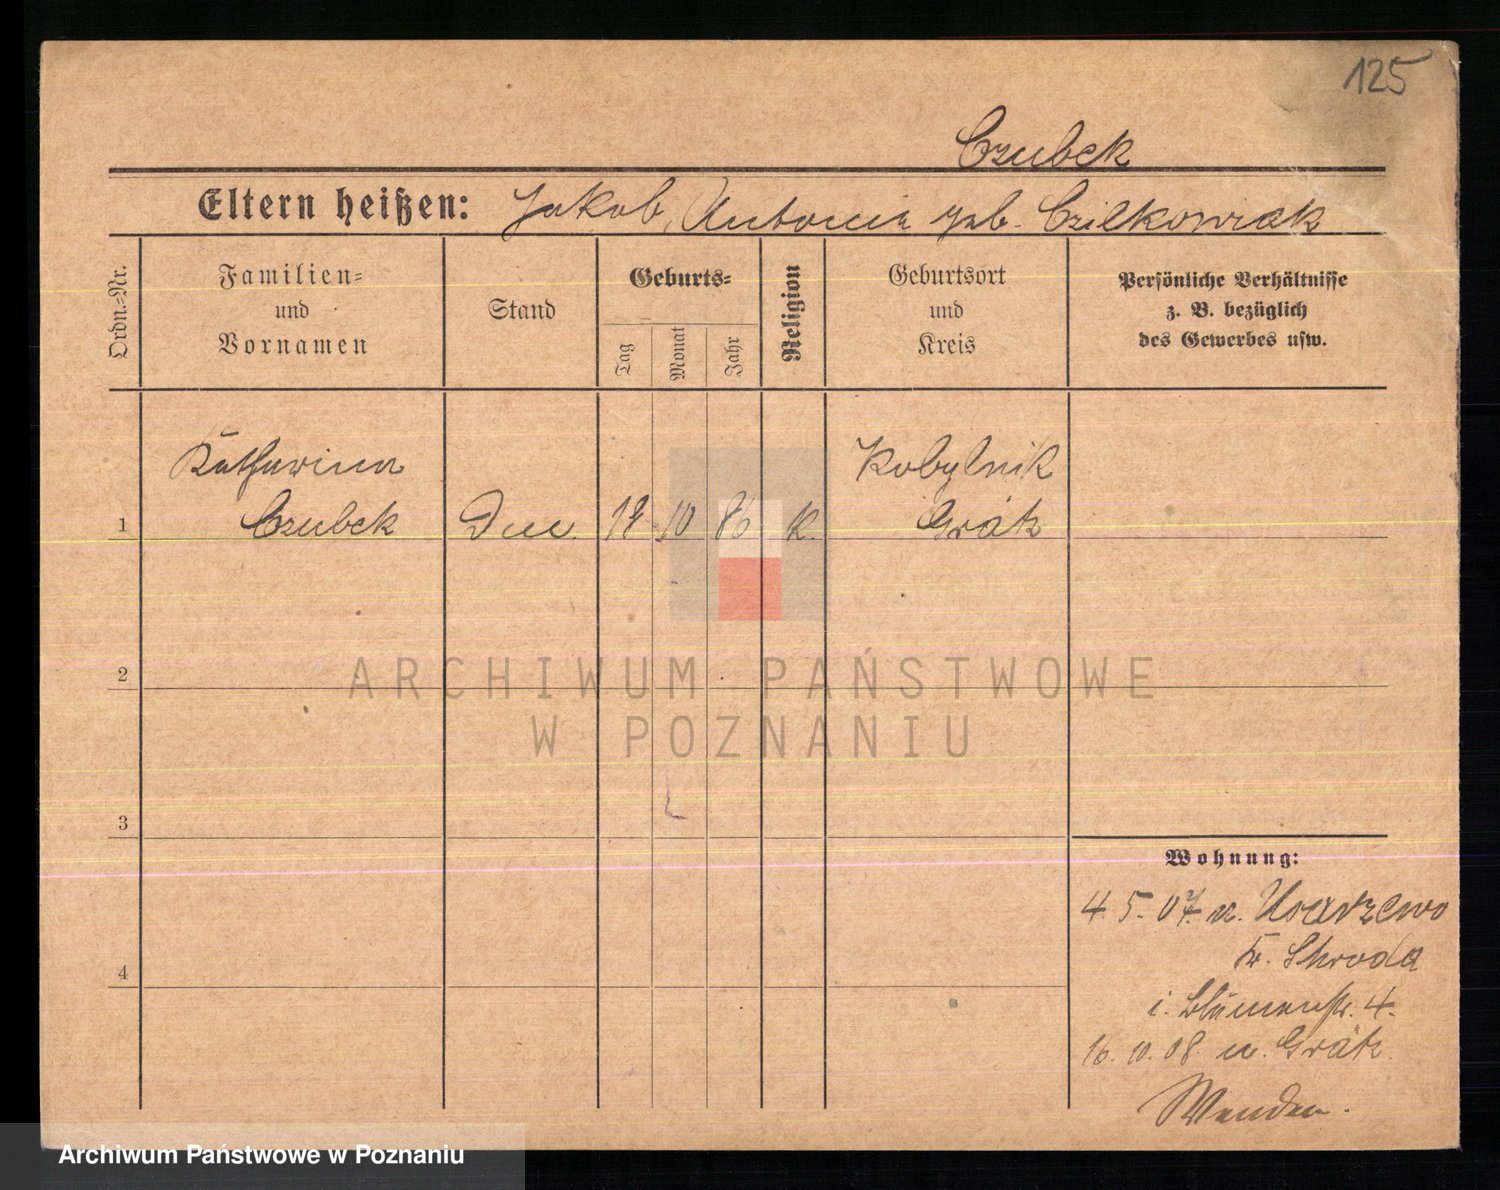 125
Czubek
Eltern heißen: Jakob, Antonie geb. Czilkowiak
Ordn.-Nr.
Familien-
und
Vornamen
Stand
Geburts-
Tag
Monat
Jahr
Religion
Geburtsort
und
Kreis
Persönliche Verhältnisse
z. B. bezüglich
des Gewerbes usw.
Katharina Kobylnik
1 Czubek 10 86 K. Grätz
ARCHIWUM PAŃSTWOWE
2
W POZNANIU
3
Wohnung:
4. 5. 07. n. Usarzewo
Kr. Schroda
4
i. Blumenstr. 4.
16. 10. 08 n. Grätz
Wenden.
Archiwum Państwowe w Poznaniu